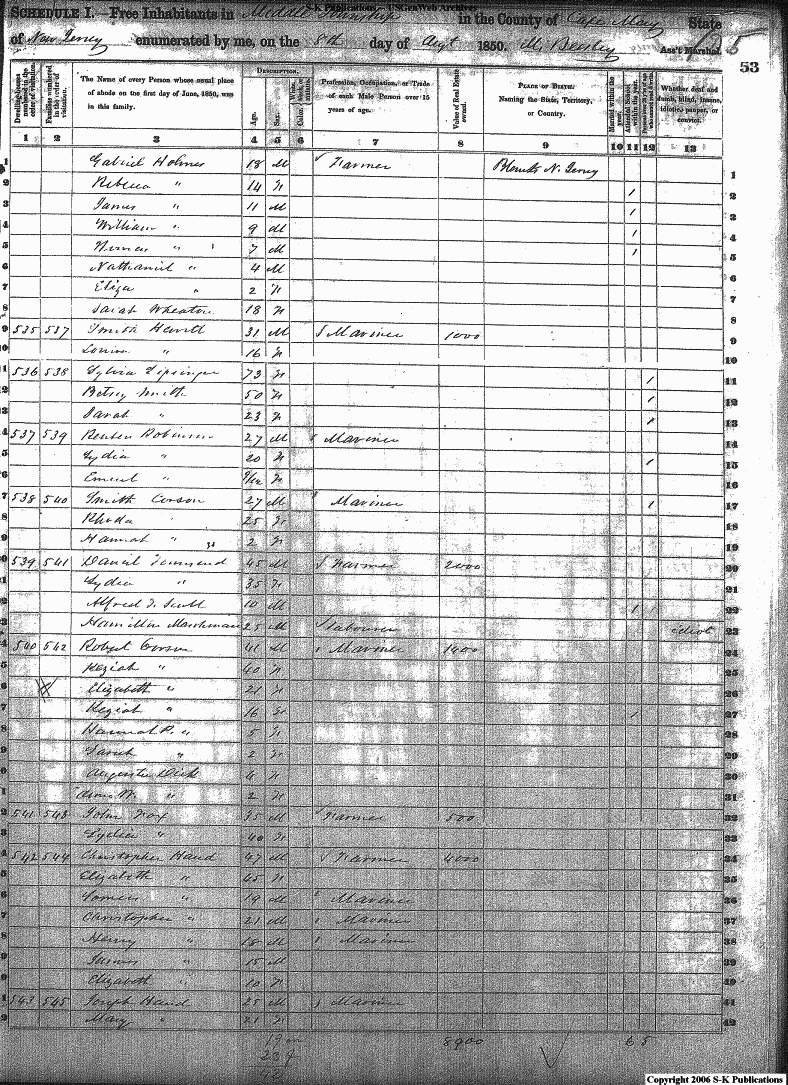 S-K Publications - USGenWeb Archives
SCHEDULE I. Free Inhabitants in Middle Township in the County of Cape May State
of New Jersey enumerated by me, on the 8th day of Augt 1850. M. Beesley Ass't Marshal.
53
Dwelling-houses numbered in the order of visitation.
Families numbered in the order of visitation.
The Name of every Person whose usual place of abode on the first day of June, 1850, was in this family.
Description.
Age.
Sex.
Color,
Profession, Occupation, or Trade of each Male Person over 15 years of age.
Value of Real Estate owned.
Place of Birth. Naming the State, Territory, or Country.
Married within the year.
Attended School within the year.
Whether deaf and dumb, blind, insane, idiotic, pauper, or convict.
1 2 3 4 5 6 7 8 9 10 11 12 13
1 Gabriel Holmes 18 M Farmer N. Jersey 1
2 Rebecca " 14 F 1 2
3 James " 11 M 1 3
4 William " 9 M 1 4
5 " 7 M 1 5
6 Nathaniel " 4 M 6
7 Eliza " 2 F 7
8 Sarah Wheaton 18 F 8
9 535 537 Smith Hewitt 31 M Mariner 1000 9
Louisa " 16 F 10
536 538 73 F 1 11
Betsey Smith 50 F 1 12
Sarah " 23 F 1 13
537 539 Reuben Robinson 27 M Mariner 14
Lydia " 20 F 1 15
" F 16
538 540 Smith Corson 27 M Mariner 1 17
Rhoda " 25 F 18
Hannah " 2 F 19
539 541 Daniel Townsend 45 M Farmer 2000 20
Lydia " 35 F
Alfred T. Scull 10 M 1 22
Hamilton Marshman 25 M Labourer idiot 23
540 542 Robert Corson 41 M Mariner 1400 24
Keziah " 40 F 25
Elizabeth " 21 F 26
Keziah " 16 F 1 27
Hannah P. " 5 F 28
Sarah " 2 F 29
4 F 30
" 2 F 31
541 543 John Fox 35 M Farmer 500 32
Lydia " 40 F 33
542 544 Christopher Hand 47 M Farmer 4000 34
Elizabeth " 45 F 35
Somers " 19 M Mariner 36
Christopher " 21 M Mariner 37
Henry " 18 M Mariner 38
" 15 M 39
Elizabeth " 10 F 40
543 545 Joseph Hand 25 M Mariner 41
Mary " 21 F 42
8900 6 5
Copyright 2006 S-K Publications